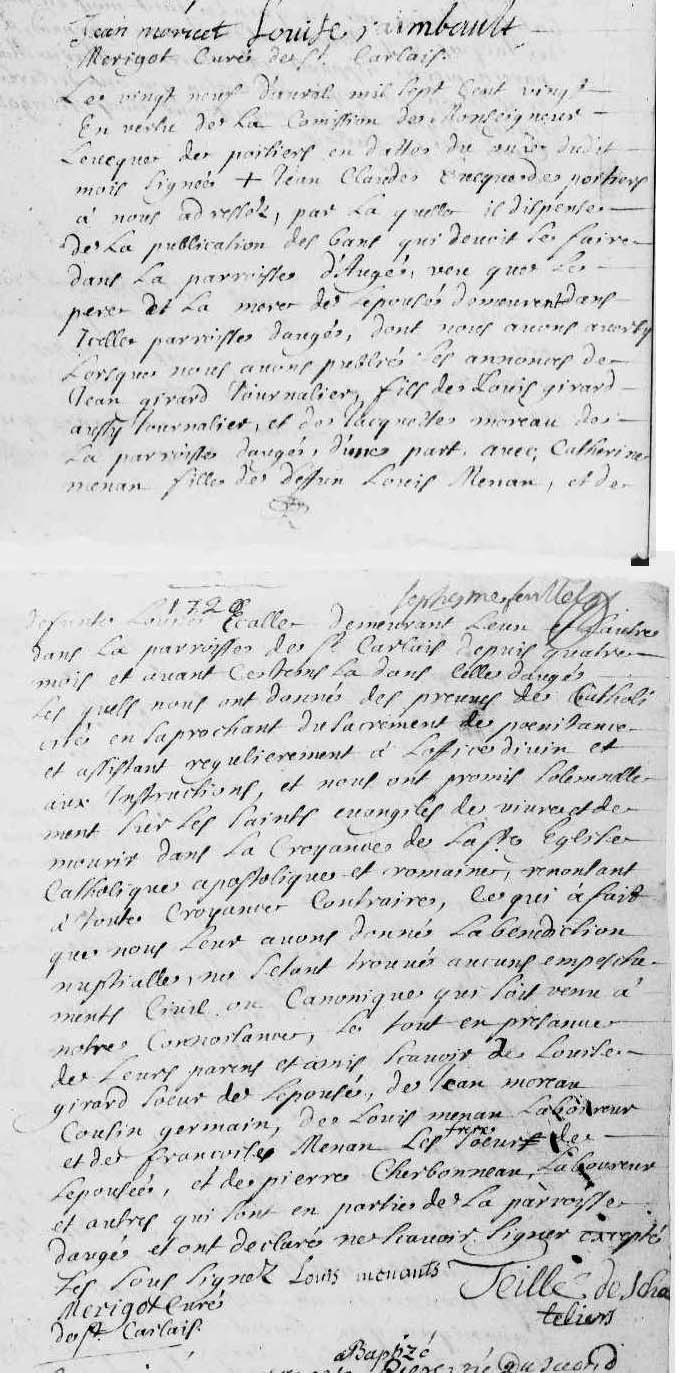 Jean moricet Louise raimbault
Merigot Curé de St. Carlais.
Le vingt neuf d'avril mil sept cent vingt
En vertu de La Comission de Monseigneur
Leveque de poitiers en datte du onze dudit
mois signée + Jean Claude Eveque de poitiers
à nous adressée, par La quelle il dispense
de La publication des bans qui devoit se faire
dans La parroisse d'Angé, veu que Le
pere et La mere de Lepousée demeurent dans
Icelle parroisse dangé, dont nous avons averty
Lorsque nous avons publié les annonces de
Jean girard Journalier, fils de Louis girard
aussy Journalier, et de Jacquette moreau de
La parroisse dangé, d'une part, avec Catherine
menan fille de deffun Louis Menan, et de
1720
defunte Louise Ecalle demeurant Leun et Lautre
dans La parroisse de St Carlais depuis quatre
mois et avant ce tems La dans Celle dangé
Les quels nous ont donné des preuves de Catholi
cité en saprochant du sacrement de poenitance
et assistant regulierement à Loffice divin et
aux Instructions, et nous ont promis solemnelle
ment sur Les saints evangiles de vivre et de
mourir dans La Croyance de La Ste Eglise
Catholique apostolique et romaine, renontant
à toute Croyance Contraire, Ce qui à fait
que nous Leur avons donné La benediction
nuptialle, ne sétant trouvé aucuns empesche-
ments Civil ou Canonique qui soit venu à
notre Connoissance, Le tout en presance
de Leurs parens et amis scavoir de Louise
girard soeur de Lepousé, de Jean moreau
Cousin germain, de Louis menan Laboureur
et de francoise Menan Les frere soeur de
Lepousée, et de pierre Cherbonneau, Laboureur
et autres qui sont en partie de La parroisse
dangé et ont declaré ne scavoir signer excepté
Les sous signez Louis menants Teillé de scha
Merigot Curé teliers
de St Carlais.
Baptizé